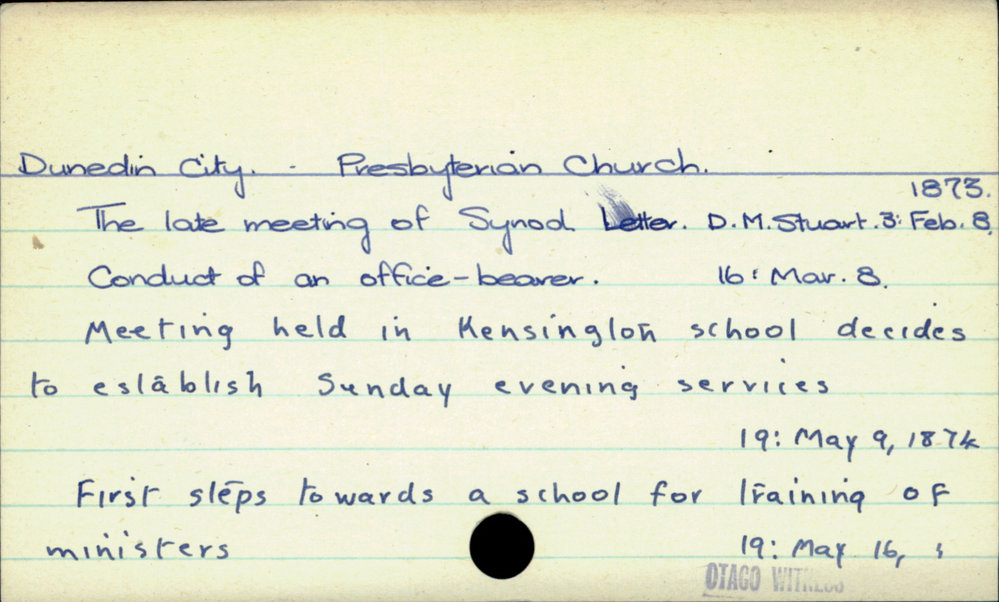 Dunedin City. - Presbyterian Church.
1873.
The late meeting of Synod. Letter. D.M. Stuart. 3: Feb. 8.
Conduct of an office-bearer. 16: Mar. 8.
Meeting held in Kensington school decides
to establish Sunday evening services
19: May 9, 1874
First steps towards a school for training of
ministers 19: May 16,
OTAGO WITNESS